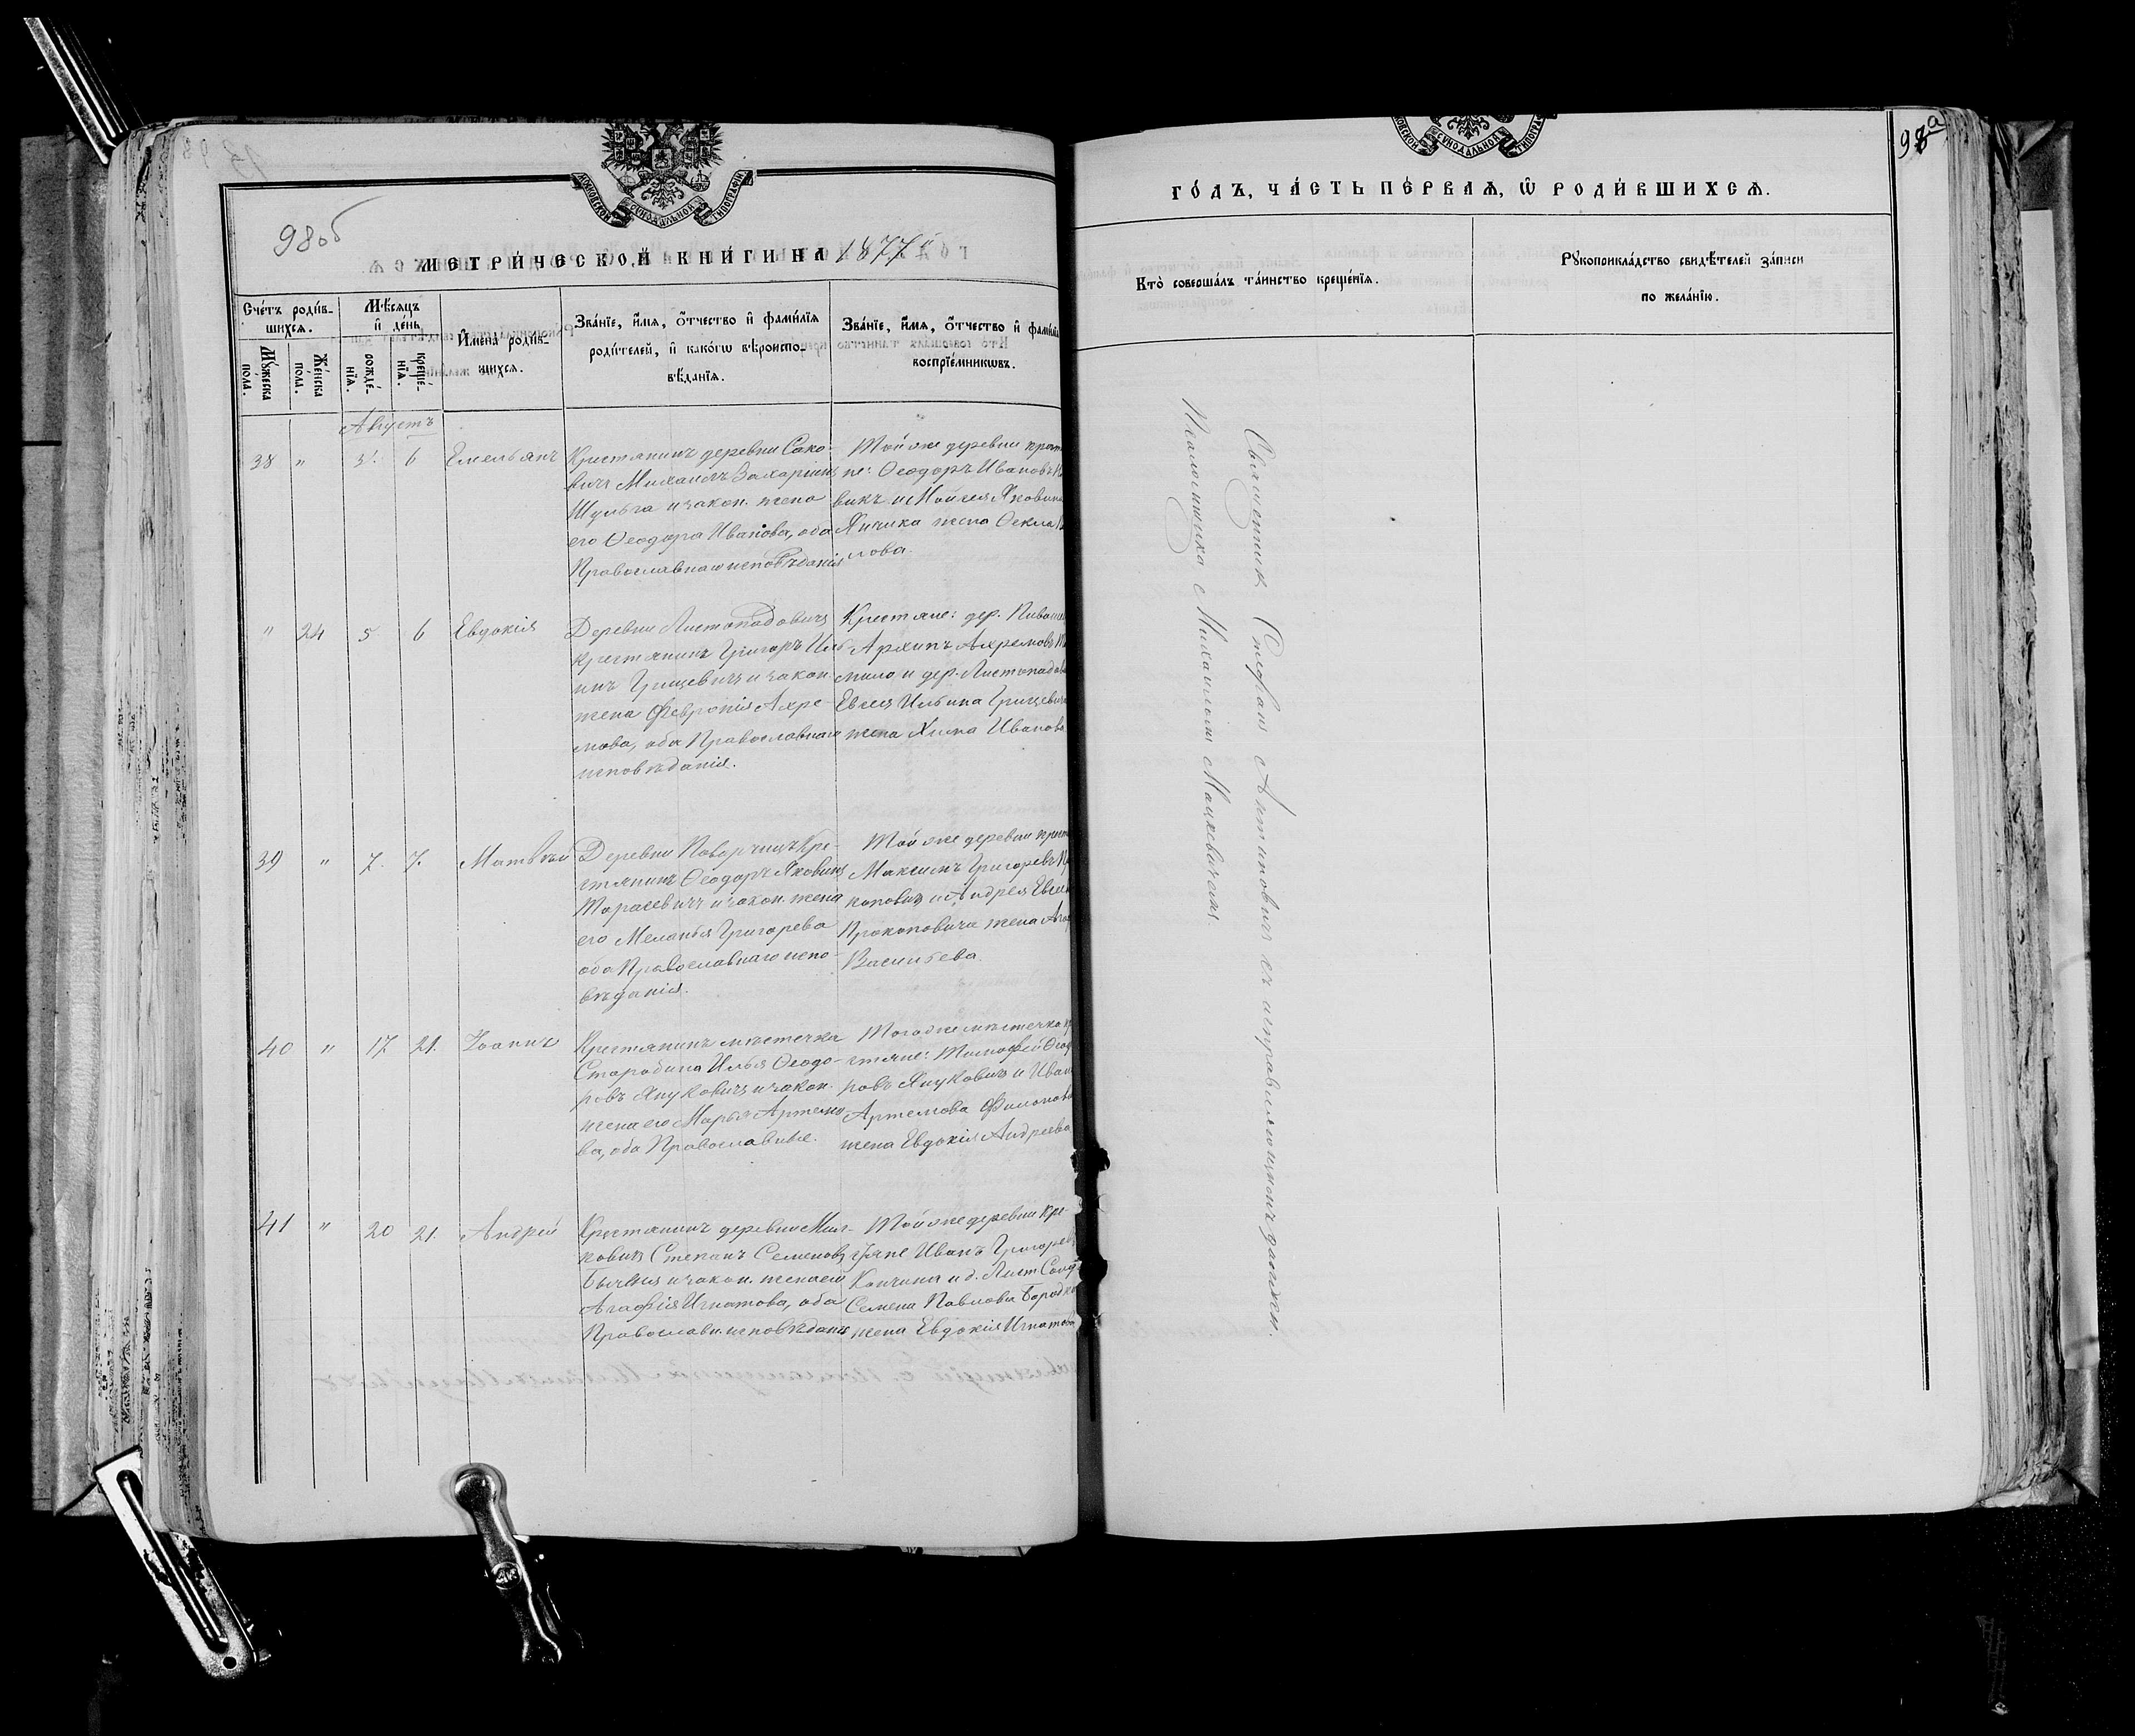 98об
МОСКОВСКОЙ СѴНОДАЛЬНОЙ ТИПОГРАФІИ
МЕТРИ́ЧЕСКОЙ КНИ́ГИ НА 1877й
Сче́тъ роди́в-
шихсѧ.
Мꙋ́жеска
пола.
Же́нска
пола.
Мѣ́сѧцъ
и҆ де́нь
рожде́-
нїѧ.
креще́-
нїѧ.
И҆мена̀ роди́в-
шихсѧ.
Зва́нїе, и҆́мѧ, ѻ҆́тчество и҆ фами́лїѧ
роди́телей, и҆ како́гѡ вѣроиспо-
вѣ́данїѧ.
Зва́нїе, и҆́мѧ, ѻ҆́тчество и҆ фами́лїѧ
воспрїе́мникѡвъ.
Августъ
38 " 3. 6 Емельянъ
Крестянинъ деревни Сако-
вичъ Михаилъ Захаріинъ
Шульга и закон. жена
его Ѳеодора Иванова, оба
Православнаго исповѣданія
Той же деревни крест
не: Ѳеодоръ Ивановъ
викъ и Мойсея Яковина
жена Ѳекла
лова.
" 24 5 6 Евдокія
Деревни Листопадовичъ
крестянинъ Григоръ Иль-
инъ Грицевичъ и закон.
жена Февронія Ахре-
мова, оба Православнаго
исповѣданія.
Крестяне: дер.
Архипъ Ахремовъ
мило и дер. Листопадов
Евсея Ильина Грицевича
жена Хима Иванова
39 " 7. 7. Матвѣй
Деревни Поварчицъ Кре-
стянинъ Ѳеодоръ Яковинъ
Тарасевичъ и закон. жена
его Меланья Григорева
оба Православнаго испо-
вѣданія.
Той же деревни крест
Максимъ Григоревъ
коповичъ и Андрея Евсея
Прокоповича жена
Васильева.
40 " 17 21. Іоаннъ
Крестянинъ мѣстечка
Старобина Илья Ѳеодо-
ровъ Януковичъ и закон.
жена его Марья Артемо-
ва, оба Православные.
Того же мѣстечка
стяне: Тимофей Ѳеод
ровъ Януковичъ и Иван
Артемова
жена Евдокія Андреева
41 " 20 21. Андрей
Крестянинъ деревни Мил-
ковичъ Степанъ Семеновъ
и закон. жена его
Агафія Игнатова, оба
Православн. исповѣданія
Той же деревни кре-
стяне Иванъ Григоревъ
и д. Лист
Семена Павлова Бородка
жена Евдокія Игнатова
98а
МОСКОВСКОЙ СѴНОДАЛЬНОЙ ТИПОГРАФІИ
ГО́ДЪ, ЧА́СТЬ ПЕ́РВАѦ, Ѽ РОДИ́ВШИХСѦ.
Кто̀ соверша́лъ та́инство креще́нїѧ.
Рꙋкоприкла́дство свидѣ́телей за́писи
по жела́нїю.
Священникъ Стефанъ Антиповичъ съ исправляющимъ должн.
Псаломщика Михаиломъ Мацкевичемъ.